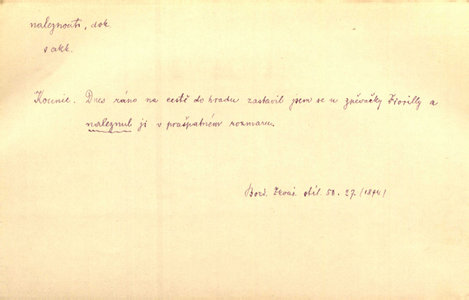 naleznouti, dok.
s akk.
Kounic. Dnes ráno na cestě do hradu zastavil jsem se u zpěvačky Fiorilly a
naleznul ji v prašpatném rozmaru.
Boz. 50. 27. (1894)